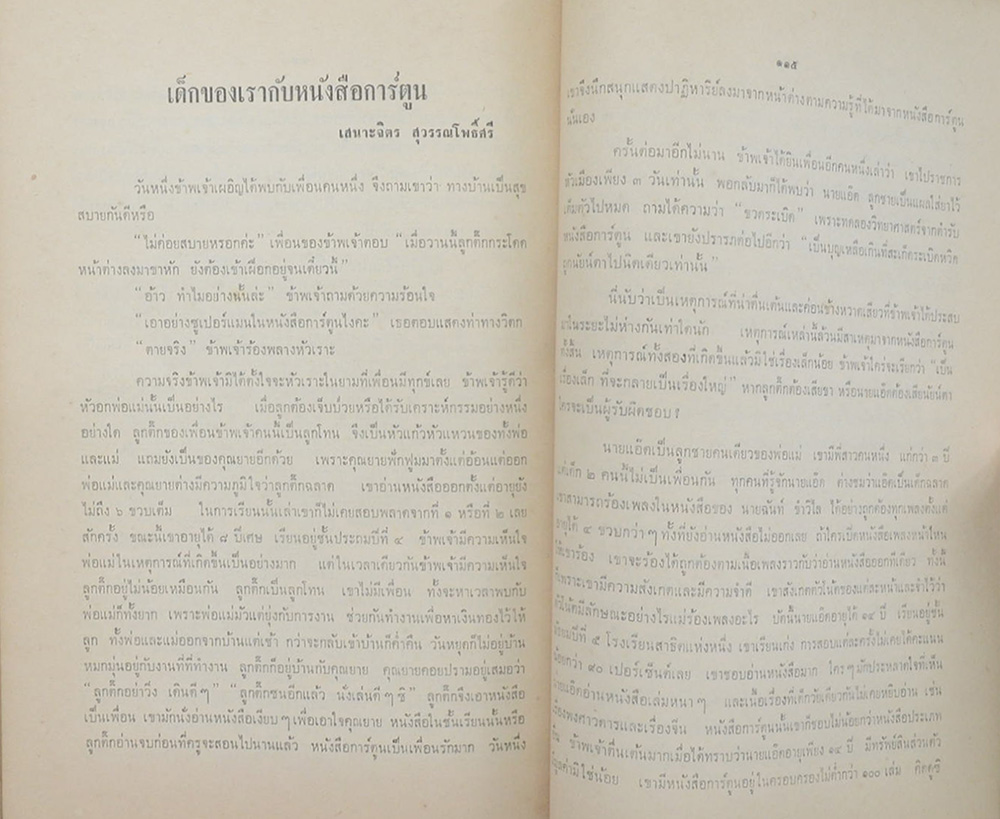 เด็กของเรากับหนังสือการ์ตูน
เสนาะจิตร สุวรรณโพธิ์ศรี
วันหนึ่งข้าพเจ้าเผอิญได้พบกับเพื่อนคนหนึ่ง จึงถามเขาว่า ทางบ้านเป็นสุข
สบายกันดีหรือ
“ไม่ค่อยสบายหรอกค่ะ” เพื่อนของข้าพเจ้าตอบ “เมื่อวานนี้ลูกติ๊กกระโดด
หน้าต่างลงมาขาหัก ยังต้องเข้าเฝือกอยู่จนเดี๋ยวนี้”
“อ้าว ทำไมอย่างนั้นล่ะ” ข้าพเจ้าถามด้วยความร้อนใจ
“เอาอย่างซูเปอร์แมนในหนังสือการ์ตูนไงคะ” เธอตอบแสดงท่าทางวิตก
“ตายจริง” ข้าพเจ้าร้องพลางหัวเราะ
ความจริงข้าพเจ้ามิได้ตั้งใจจะหัวเราะในยามที่เพื่อนมีทุกข์เลย ข้าพเจ้ารู้ดีว่า
หัวอกพ่อแม่นั้นเป็นอย่างไร เมื่อลูกต้องเจ็บป่วยหรือได้รับเคราะห์กรรมอย่างหนึ่ง
อย่างใด ลูกติ๊กของเพื่อนข้าพเจ้าคนนี้เป็นลูกโทน จึงเป็นหัวแก้วหัวแหวนของทั้งพ่อ
และแม่ แถมยังเป็นของคุณยายอีกด้วย เพราะคุณยายฟักฟูมมาตั้งแต่อ้อนแต่ออก
พ่อแม่และคุณยายต่างมีความภูมิใจว่าลูกติ๊กฉลาด เขาอ่านหนังสือออกตั้งแต่อายุยัง
ไม่ถึง ๖ ขวบเต็ม ในการเรียนนั้นเล่าเขาก็ไม่เคยสอบพลาดจากที่ ๑ หรือที่ ๒ เลย
สักครั้ง ขณะนี้เขาอายุได้ ๘ ปีเศษ เรียนอยู่ชั้นประถมปีที่ ๔ ข้าพเจ้ามีความเห็นใจ
พ่อแม่ในเหตุการณ์ที่เกิดขึ้นเป็นอย่างมาก แต่ในเวลาเดียวกันข้าพเจ้ามีความเห็นใจ
ลูกติ๊กอยู่ไม่น้อยเหมือนกัน ลูกติ๊กเป็นลูกโทน เขาไม่มีเพื่อน ทั้งจะหาเวลาพบกับ
พ่อแม่ก็ทั้งยาก เพราะพ่อแม่มัวแต่ยุ่งกับการงาน ช่วยกันทำงานเพื่อหาเงินทองไว้ให้
ลูก ทั้งพ่อและแม่ออกจากบ้านแต่เช้า กว่าจะกลับเข้าบ้านก็ค่ำคืน วันหยุดก็ไม่อยู่บ้าน
หมกมุ่นอยู่กับงานที่ที่ทำงาน ลูกติ๊กก็อยู่บ้านกับคุณยาย คุณยายคอยปรามอยู่เสมอว่า
“ลูกติ๊กอย่าวิ่ง เดินดีๆ” “ลูกติ๊กซนอีกแล้ว นั่งเล่นดีๆ ซิ” ลูกติ๊กจึงเอาหนังสือ
เป็นเพื่อน เขามักนั่งอ่านหนังสือเงียบๆ เพื่อเอาใจคุณยาย หนังสือในชั้นเรียนนั้นหรือ
ลูกติ๊กอ่านจบก่อนที่ครูจะสอนไปนานแล้ว หนังสือการ์ตูนเป็นเพื่อนรักมาก วันหนึ่ง
๑๑๕
เขาจึงนึกสนุกแสดงปาฏิหาริย์ลงมาจากหน้าต่างตามความรู้ที่ได้มาจากหนังสือการ์ตูน
นั่นเอง
ครั้นต่อมาอีกไม่นาน ข้าพเจ้าได้ยินเพื่อนอีกคนหนึ่งเล่าว่า เขาไปราชการ
หัวเมืองเพียง ๓ วันเท่านั้น พอกลับมาก็ได้พบว่า นายแอ๊ด ลูกชายเป็นแผลใส่ยาไว้
เต็มตัวไปหมด ถามได้ความว่า “ขวดระเบิด” เพราะทดลองวิทยาศาสตร์จากตำรับ
หนังสือการ์ตูน และเขายังปรารภต่อไปอีกว่า “เป็นบุญเหลือเกินที่สะเก็ดระเบิดหวิด
ลูกนัยน์ตาไปนิดเดียวเท่านั้น”
นี่นับว่าเป็นเหตุการณ์ที่น่าตื่นเต้นและค่อนข้างหวาดเสียวที่ข้าพเจ้าได้ประสบ
มาในระยะไม่ห่างกันเท่าใดนัก เหตุการณ์เหล่านี้ล้วนมีสาเหตุมาจากหนังสือการ์ตูน
ทั้งสิ้น เหตุการณ์ทั้งสองที่เกิดขึ้นแล้วมิใช่เรื่องเล็กน้อย ข้าพเจ้าใคร่จะเรียกว่า “เป็น
เรื่องเล็ก ที่จะกลายเป็นเรื่องใหญ่” หากลูกติ๊กต้องเสียขา หรือนายแอ๊ดต้องเสียนัยน์ตา
ใครจะเป็นผู้รับผิดชอบ?
นายแอ๊ดเป็นลูกชายคนเดียวของพ่อแม่ เขามีพี่สาวคนหนึ่ง แก่กว่า ๓ ปี
แต่เด็ก ๒ คนนี้ไม่เป็นเพื่อนกัน ทุกคนที่รู้จักนายแอ๊ด ต่างชมว่าแอ๊ดเป็นเด็กฉลาด
เขาสามารถร้องเพลงในหนังสือของ นายฉันท์ ขำวิไล ได้อย่างถูกต้องทุกเพลงตั้งแต่
อายุได้ ๔ ขวบกว่าๆ ทั้งที่ยังอ่านหนังสือไม่ออกเลย ถ้าใครเปิดหนังสือเพลงหน้าไหน
ให้เขาร้อง เขาจะร้องได้ถูกต้องตามเนื้อเพลงราวกับว่าอ่านหนังสือออกทีเดียว ทั้งนี้
ก็เพราะเขามีความสังเกตและมีความจำดี เขาสังเกตตัวโน้ตของแต่ละหน้าและจำไว้ว่า
ตัวโน้ตมีลักษณะอย่างไรแม่ร้องเพลงอะไร บัดนี้นายแอ๊ดอายุได้ ๑๔ ปี เรียนอยู่ชั้น
มัธยมปีที่ ๕ โรงเรียนสาธิตแห่งหนึ่ง เขาเรียนเก่ง การสอบแต่ละครั้งไม่เคยได้คะแนน
น้อยกว่า ๙๐ เปอร์เซ็นต์เลย เขาชอบอ่านหนังสือมาก ใครๆ มักประหลาดใจที่เห็น
นายแอ๊ดอ่านหนังสือเล่มหนาๆ และเนื้อเรื่องที่เด็กวัยเดียวกันไม่เคยหยิบอ่าน เช่น
เรื่องพงศาวดารและเรื่องจีน หนังสือการ์ตูนนั้นเขาก็ชอบไม่น้อยกว่าหนังสือประเภท
อื่น ข้าพเจ้าตื่นเต้นมากเมื่อได้ทราบว่านายแอ๊ดอายุเพียง ๑๔ ปี มีทรัพย์สินส่วนตัว
มูลค่ามิใช่น้อย เขามีหนังสือการ์ตูนอยู่ในครอบครองไม่ต่ำกว่า ๑๐๐ เล่ม คิดดูซิ